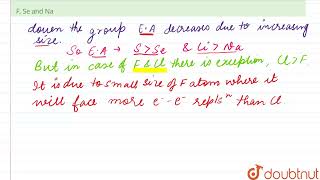 F, Se and Na
down the group E·A decreases due to increasing
size.
So E.A → S > Se & Li > Na
But in case of F & Cl there is exception, Cl > F.
It is due to small size of F atom where it
will face more e⁻-e⁻ repls^n than Cl
doubtnut